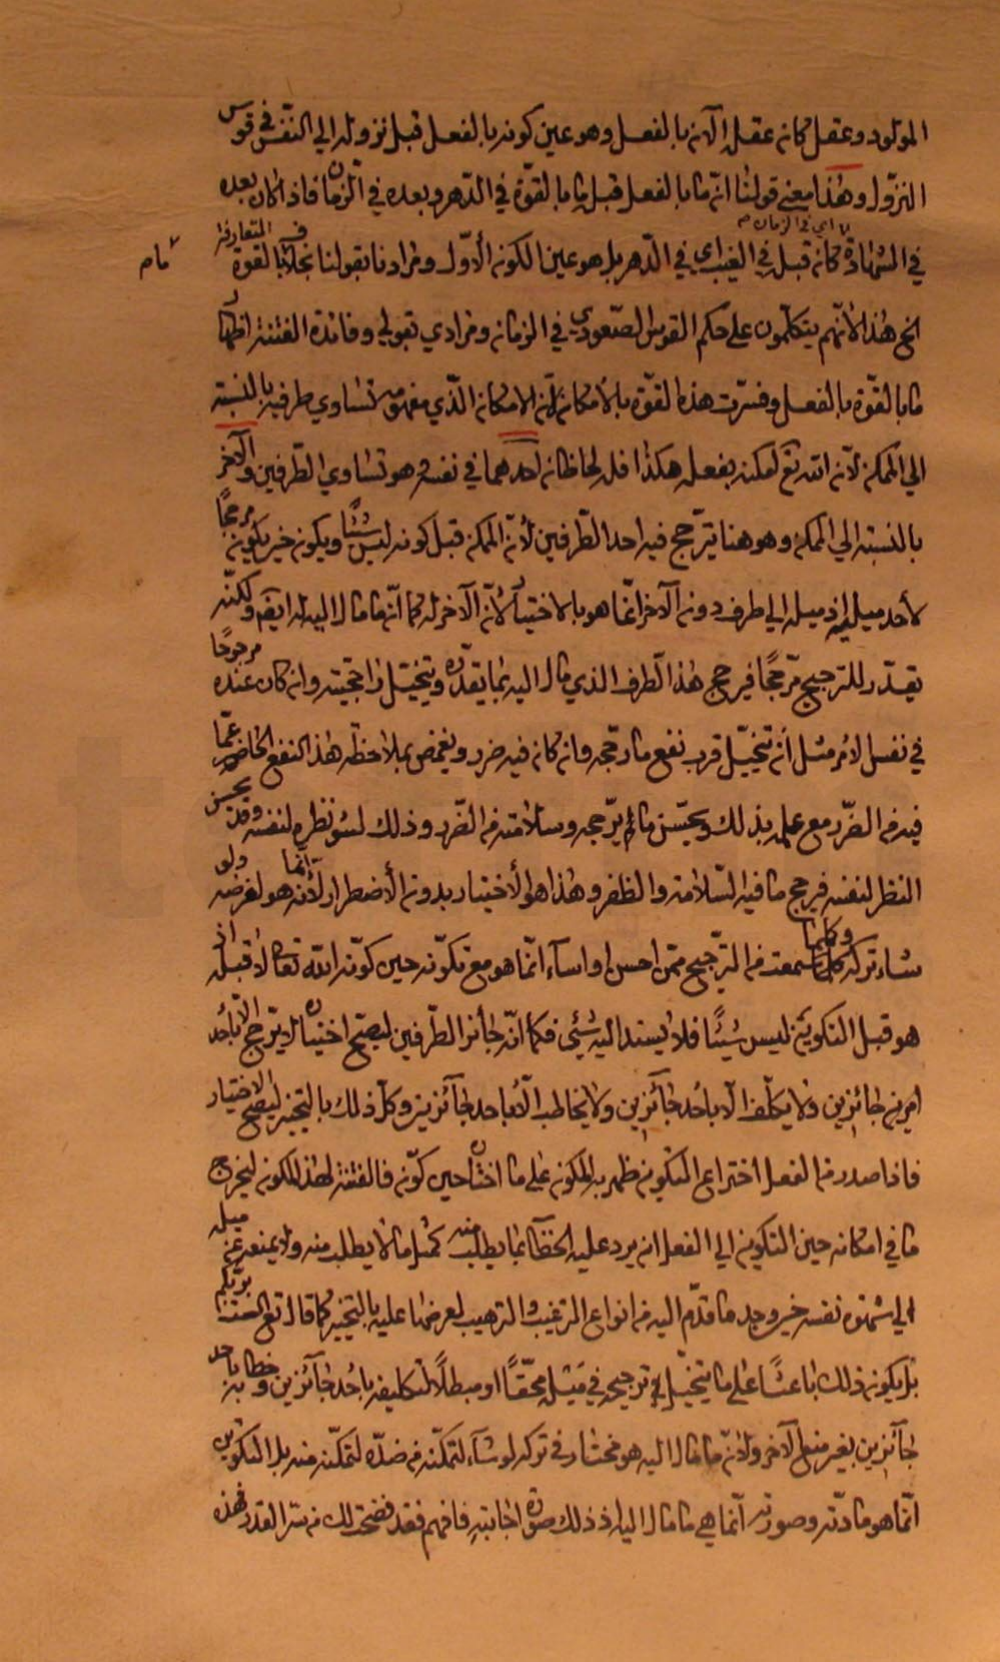 المولود وعقل كانه عقله الآن بالفعل وهو عين كونه بالفعل قبل نزوله الي النقش في قوس
النزول وهذا معني قولنا ان ما بالفعل قبل ما بالقوة في الدهر وبعده في الزمان فاذا كان بعده
اي في الزمان
في الشهادة كان قبل في الغيب اي في الدهر بل هو عين الكون الأول ومرادنا بقولنا بالقوة المتعارفة
الخ هذا لأنهم يتكلمون علي حكم القوس الصعودي في الزمان ومرادي بقولي وفائدة الفتنة اظهار
ما بالقوة بالفعل وفسرت هذه القوة بالامكان لأن الامكان الذي مفهومه تساوي طرفيه بالنسبة
الي الممكن لأن الله تع امكنه بفعله هكذا فله لحاظان احدهما في نفسه وهو تساوي الطرفين والآخر
بالنسبة الي الممكن وهو هنا يترجح فيه احد الطرفين لأن الممكن قبل كونه ليس شيئا ويكون حين يكون مرجحا
لأحد ميليه اذ ميله الي طرف دون الآخر انما هو بالاختيار لأن الآخر له كما ان ما مال اليه له ايضا ولكنه
يقدر للترجيح مرجحا فيرجح هذا الطرف الذي مال اليه بما يقدره ويتخيل راجحيته وان كان عنده مرجوحا
في نفس الأمر مثل أن يتخيل قرب نفع ما رجحه وان كان فيه ضرر ويغمض بملاحظة هذا النفع الحاضر عما
فيه من الضرر مع علمه بذلك ويحسن ما لم يرجحه وسلامته من الضرر وذلك لسوء نظره لنفسه وقد يحسن
النظر لنفسه فيرجح ما فيه السلامة والظفر وهذا هو الأختيار بدون الأضطرار لأنه انما هو لغرضه ولو
شاء تركه وكلما سمعت من الترجيح ممن احسن او اساء انما هو مع تكونه حين كونه الله تعالي لا قبله اذ
هو قبل التكوين ليس شيئا فلا يسند اليه شيئ فكما انه جائز الطرفين ليصح اختياره لا يرجح الا بأحد
امرين جائزين ولا يكلف الا بأحد جائزين ولا يخاطب الا بأحد جائزين وكل ذلك بالتخيير ليصح الاختيار
فاذا صدر من الفعل اختراعي التكوين ظهر به المكون علي ما اختاره حين كونه فالفتنة لهذا المكون ليخرج
ما في امكانه حين التكوين الي الفعل ان يرد عليه الخطاب بما يطلب منه كمثل ما لا يطلب منه ولا يمنعه عن ميله
الي شهوة نفسه حين وجد ما قدم اليه من انواع الترغيب والترهيب لعرضها عليه بالتخيير كما قال تع الست بربكم
بل يكون ذلك باعثا علي ما يتخيل ترجيحه في ميله محقا او مبطلا لتكليفه بأحد جائزين وخطابه باحد
جائزين بغير منع الآخر ولأن ما مال اليه هو مختار في تركه لو شاء لتمكنه من ضده لتمكنه منه بل التكوين
انما هو مادته وصورته انما هي ما مال اليه اذ ذلك صورة اجابته فافهم فقد فتحت لك من سر القدر فهذه